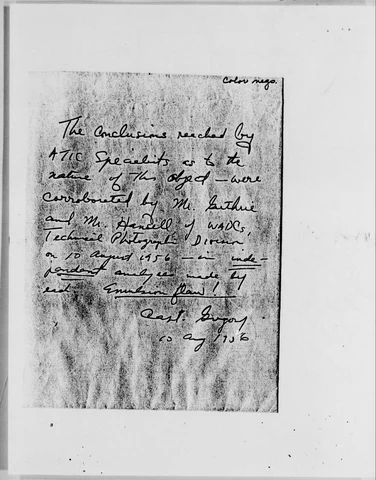 Color negs.
The Conclusions reached by
ATIC Specialists as to the
nature of the object – were
corroborated by Mr. Guthrie
and Mr. Hansell of WADC,
Technical Photographic Division
on 10 August 1956 – in inde-
pendent analyses made by
each Emulsion flaw!
Capt. Gregory
10 Aug 1956